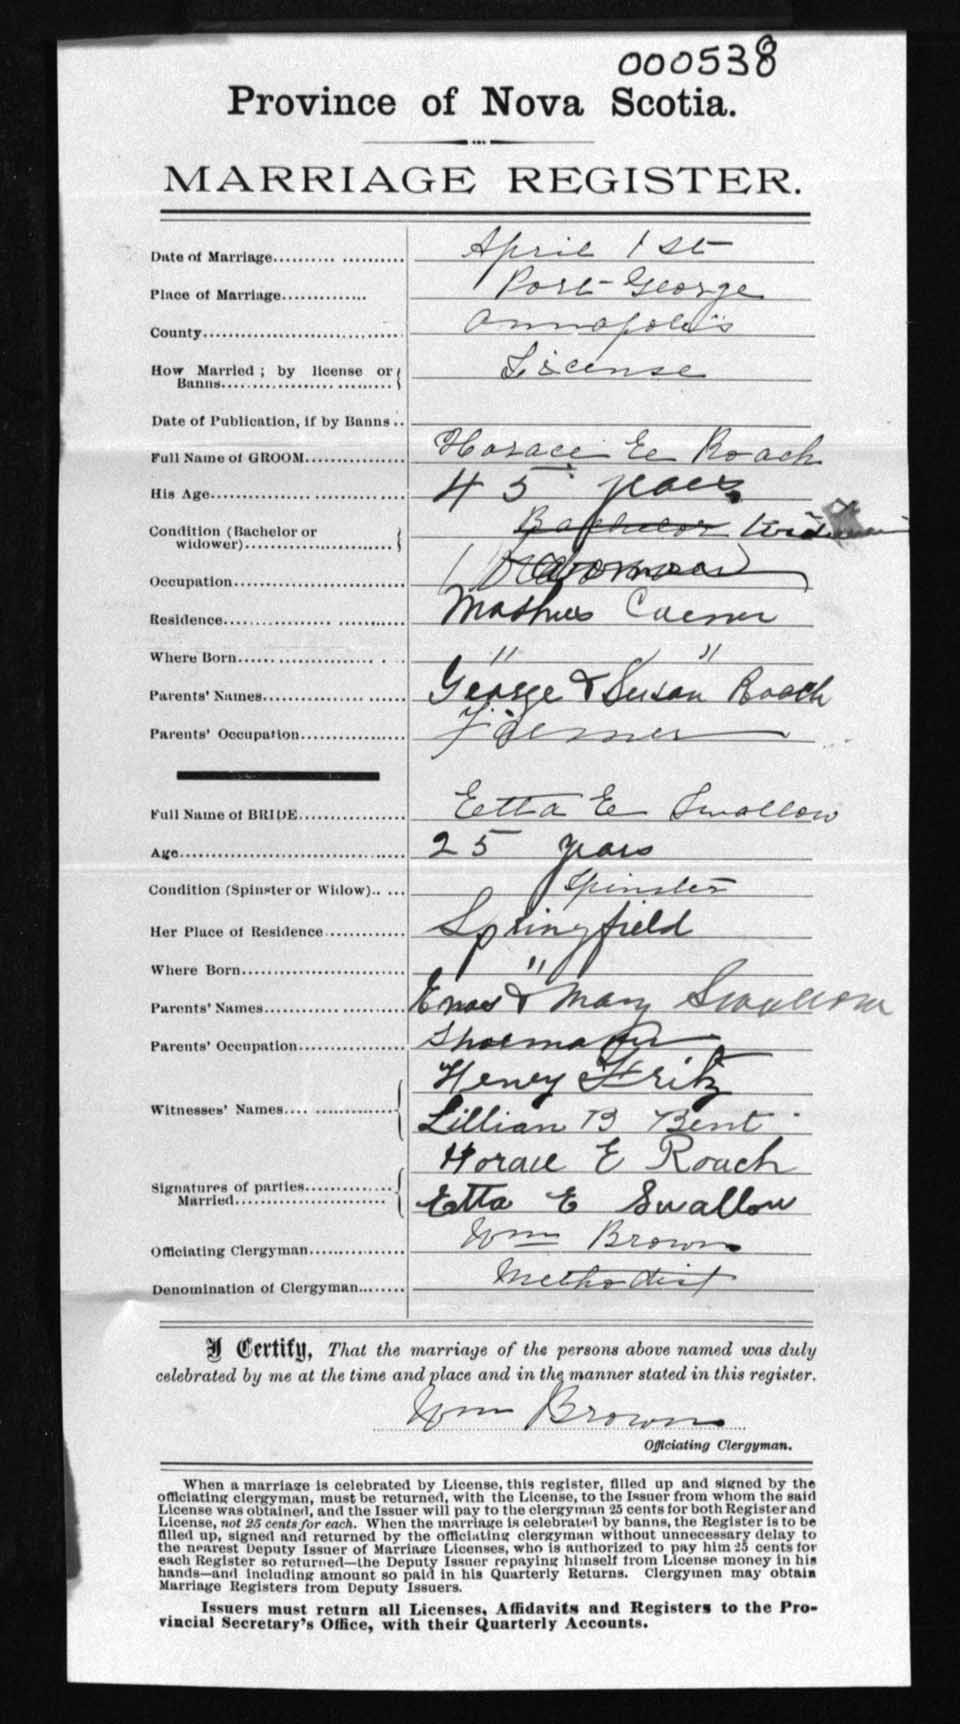 000538
Province of Nova Scotia.
MARRIAGE REGISTER.
Date of Marriage.......... .......... April 1st
Place of Marriage.............. Port George
County............................. Annapolis
How Married ; by license or
Banns................. ......... License
Date of Publication, if by Banns ..
Full Name of GROOM................. Horace E Roach
His Age................ ............... 45 years
Condition (Bachelor or
widower)........................ Bachelor
Occupation........................
Residence................. ..........
Where Born...................... . .. " "
Parents' Names................. ...... George & Susan Roach
Parents' Occupation.................
Full Name of BRIDE................. Etta E Swallow
Age..................................... 25 years
Condition (Spinster or Widow).. ... Spinster
Her Place of Residence ............ Springfield
Where Born.......................... "
Parents' Names............ .......... & Mary Swallow
Parents' Occupation................. Shoemaker
Henry Fritz
Witnesses' Names.... ............... Lillian B Bent
Horace E Roach
Signatures of parties..............
Married......................... Etta E Swallow
Officiating Clergyman............... Wm Brown
Denomination of Clergyman........ Methodist
I Certify, That the marriage of the persons above named was duly
celebrated by me at the time and place and in the manner stated in this register.
Wm Brown
Officiating Clergyman.
When a marriage is celebrated by License, this register, filled up and signed by the
officiating clergyman, must be returned, with the License, to the Issuer from whom the said
License was obtained, and the Issuer will pay to the clergyman 25 cents for both Register and
License, not 25 cents for each. When the marriage is celebrated by banns, the Register is to be
filled up, signed and returned by the officiating clergyman without unnecessary delay to
the nearest Deputy Issuer of Marriage Licenses, who is authorized to pay him 25 cents for
each Register so returned—the Deputy Issuer repaying himself from License money in his
hands—and including amount so paid in his Quarterly Returns. Clergymen may obtain
Marriage Registers from Deputy Issuers.
Issuers must return all Licenses, Affidavits and Registers to the Pro-
vincial Secretary's Office, with their Quarterly Accounts.